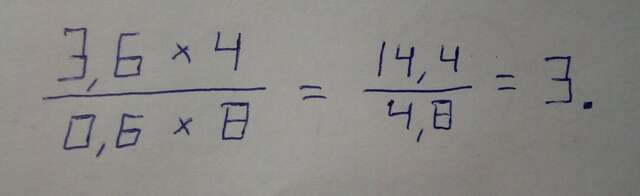 3,6 × 4 / 0,6 × 8 = 14,4 / 4,8 = 3.